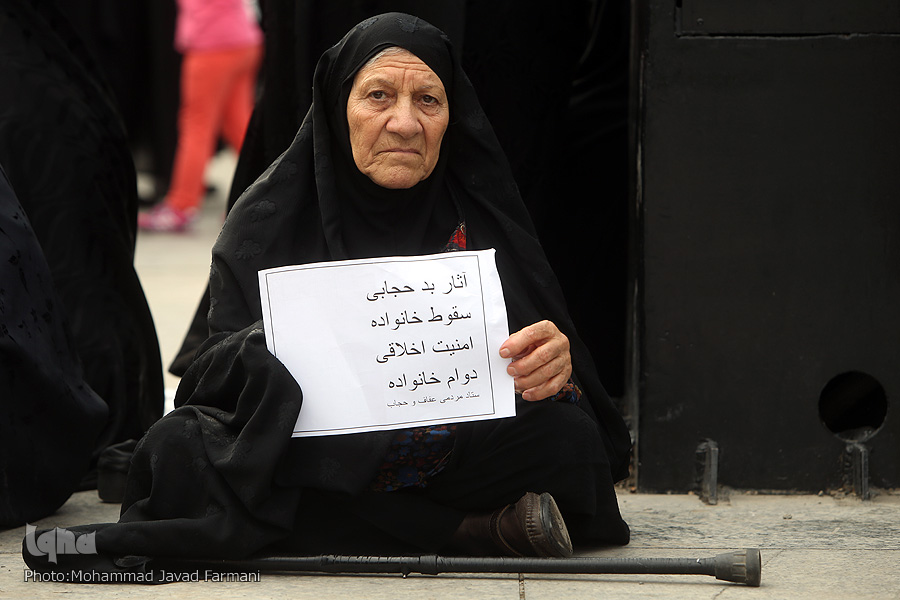 آثار بد حجابی
سقوط خانواده
امنیت اخلاقی
دوام خانواده
ستاد مردمی عفاف و حجاب
Iqna
Photo:Mohammad Javad Farmani